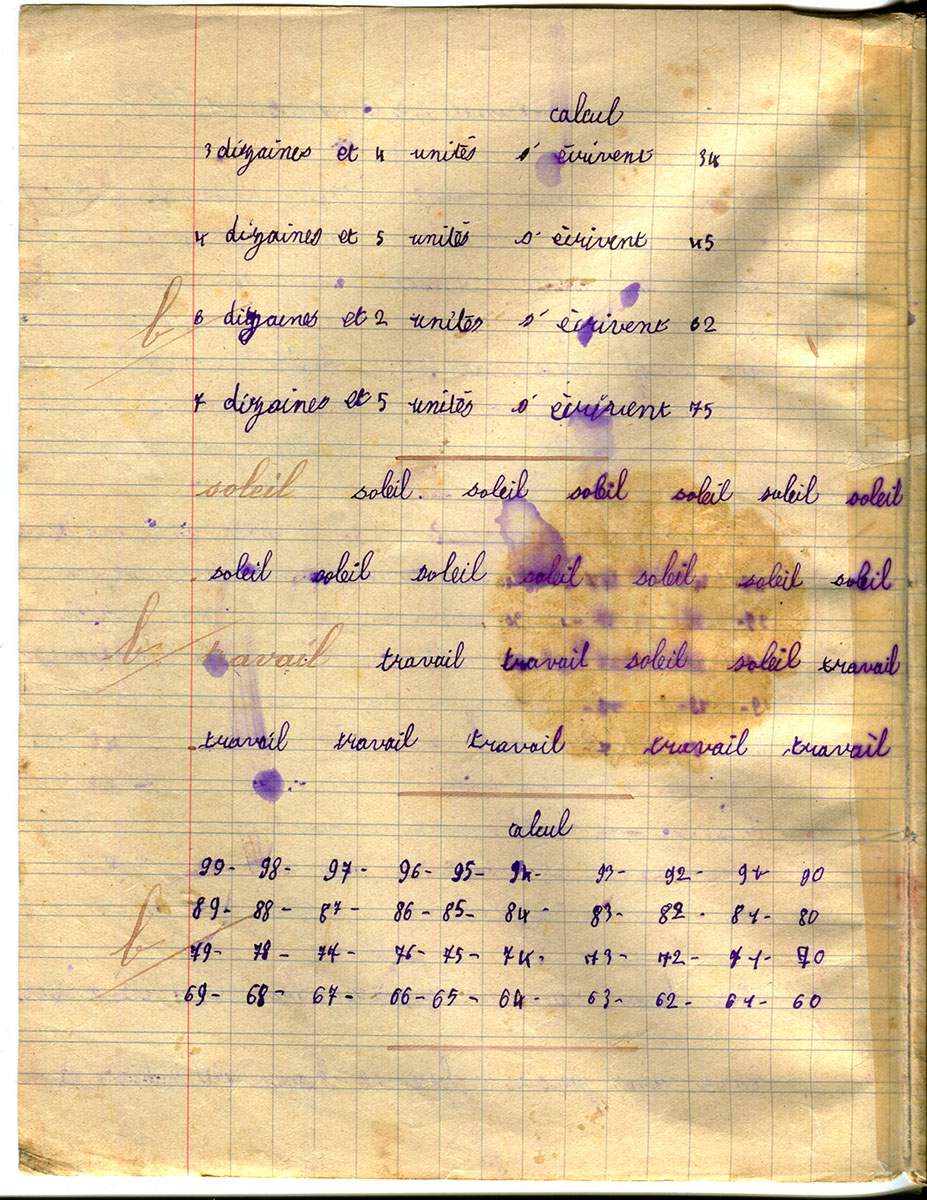 calcul
3 dizaines et 4 unités s'écrivent 34
4 dizaines et 5 unités s'écrivent 45
b 6 dizaines et 2 unités s'écrivent 62
7 dizaines et 5 unités s'écrivent 75
soleil soleil soleil soleil soleil soleil soleil
soleil soleil soleil soleil soleil soleil soleil
b travail travail travail soleil soleil travail
travail travail travail travail travail
calcul
99- 98- 97- 96- 95- 94- 93- 92- 91- 90
89- 88- 87- 86- 85- 84- 83- 82- 81- 80
b 79- 78- 77- 76- 75- 74- 73- 72- 71- 70
69- 68- 67- 66- 65- 64- 63- 62- 61- 60